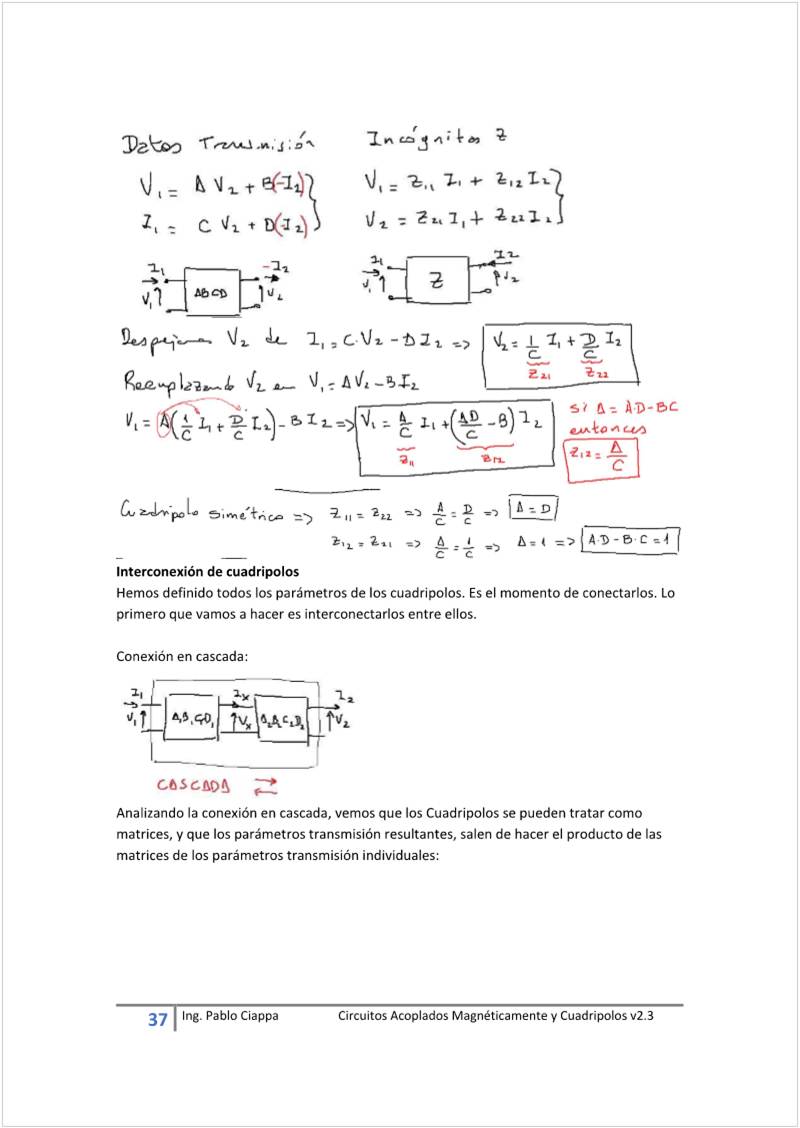 Datos Transmisión Incógnitas Z
V₁ = A V₂ + B(-I₂) V₁ = Z₁₁ I₁ + Z₁₂ I₂
I₁ = C V₂ + D(-I₂) V₂ = Z₂₁ I₁ + Z₂₂ I₂
I₁ -I₂ I₁ I₂
V₁ ABCD V₂ V₁ Z V₂
Despejamos V₂ de I₁ = C.V₂ - D I₂ => V₂ = 1/C I₁ + D/C I₂
Z₂₁ Z₂₂
Reemplazando V₂ en V₁ = A V₂ - B I₂
V₁ = A(1/C I₁ + D/C I₂) - B I₂ => V₁ = A/C I₁ + (AD/C - B) I₂
Z₁₁ Z₁₂
si Δ = A.D - BC
entonces
Z₁₂ = Δ/C
Cuadripolo simétrico => Z₁₁ = Z₂₂ => A/C = D/C => A = D
Z₁₂ = Z₂₁ => Δ/C = 1/C => Δ = 1 => A.D - B.C = 1
Interconexión de cuadripolos
Hemos definido todos los parámetros de los cuadripolos. Es el momento de conectarlos. Lo
primero que vamos a hacer es interconectarlos entre ellos.
Conexión en cascada:
I₁ Iₓ I₂
V₁ A₁B₁C₁D₁ Vₓ A₂B₂C₂D₂ V₂
CASCADA
Analizando la conexión en cascada, vemos que los Cuadripolos se pueden tratar como
matrices, y que los parámetros transmisión resultantes, salen de hacer el producto de las
matrices de los parámetros transmisión individuales:
37 Ing. Pablo Ciappa Circuitos Acoplados Magnéticamente y Cuadripolos v2.3